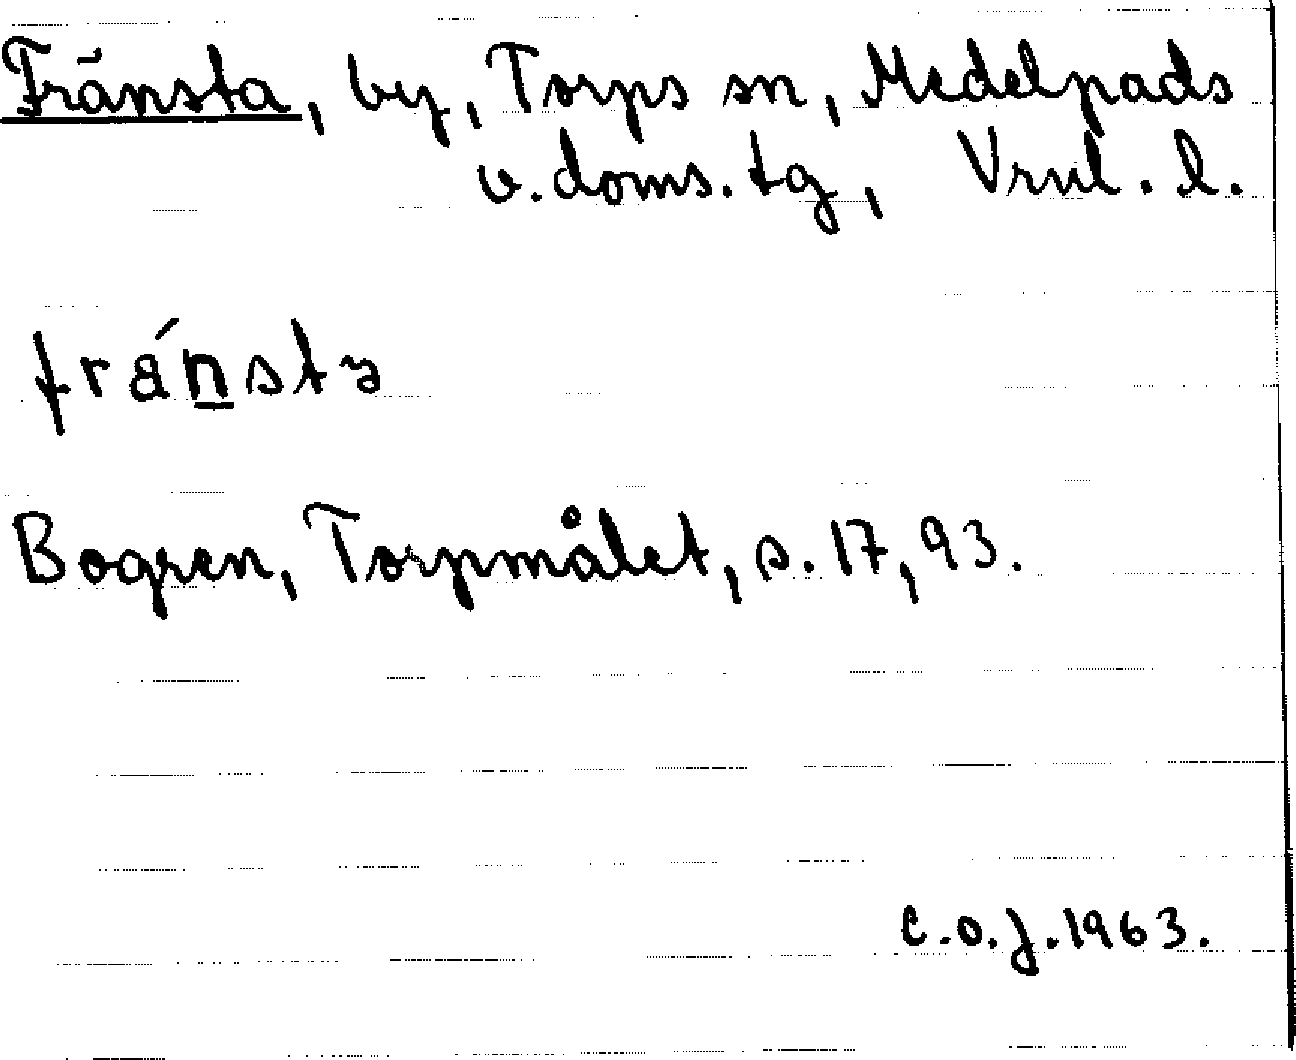 Fränsta, by, Torps sn, Medelpads
v. doms. tg, Vrnl. l.
fránsta
Bogren, Torpmålet, s. 17, 93.
C.O.J. 1963.